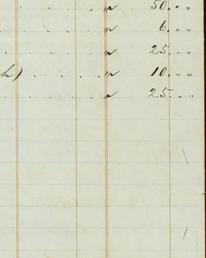 " 50. " "
" 6. " "
" 25. " "
h) " 10. " "
" 25. " "